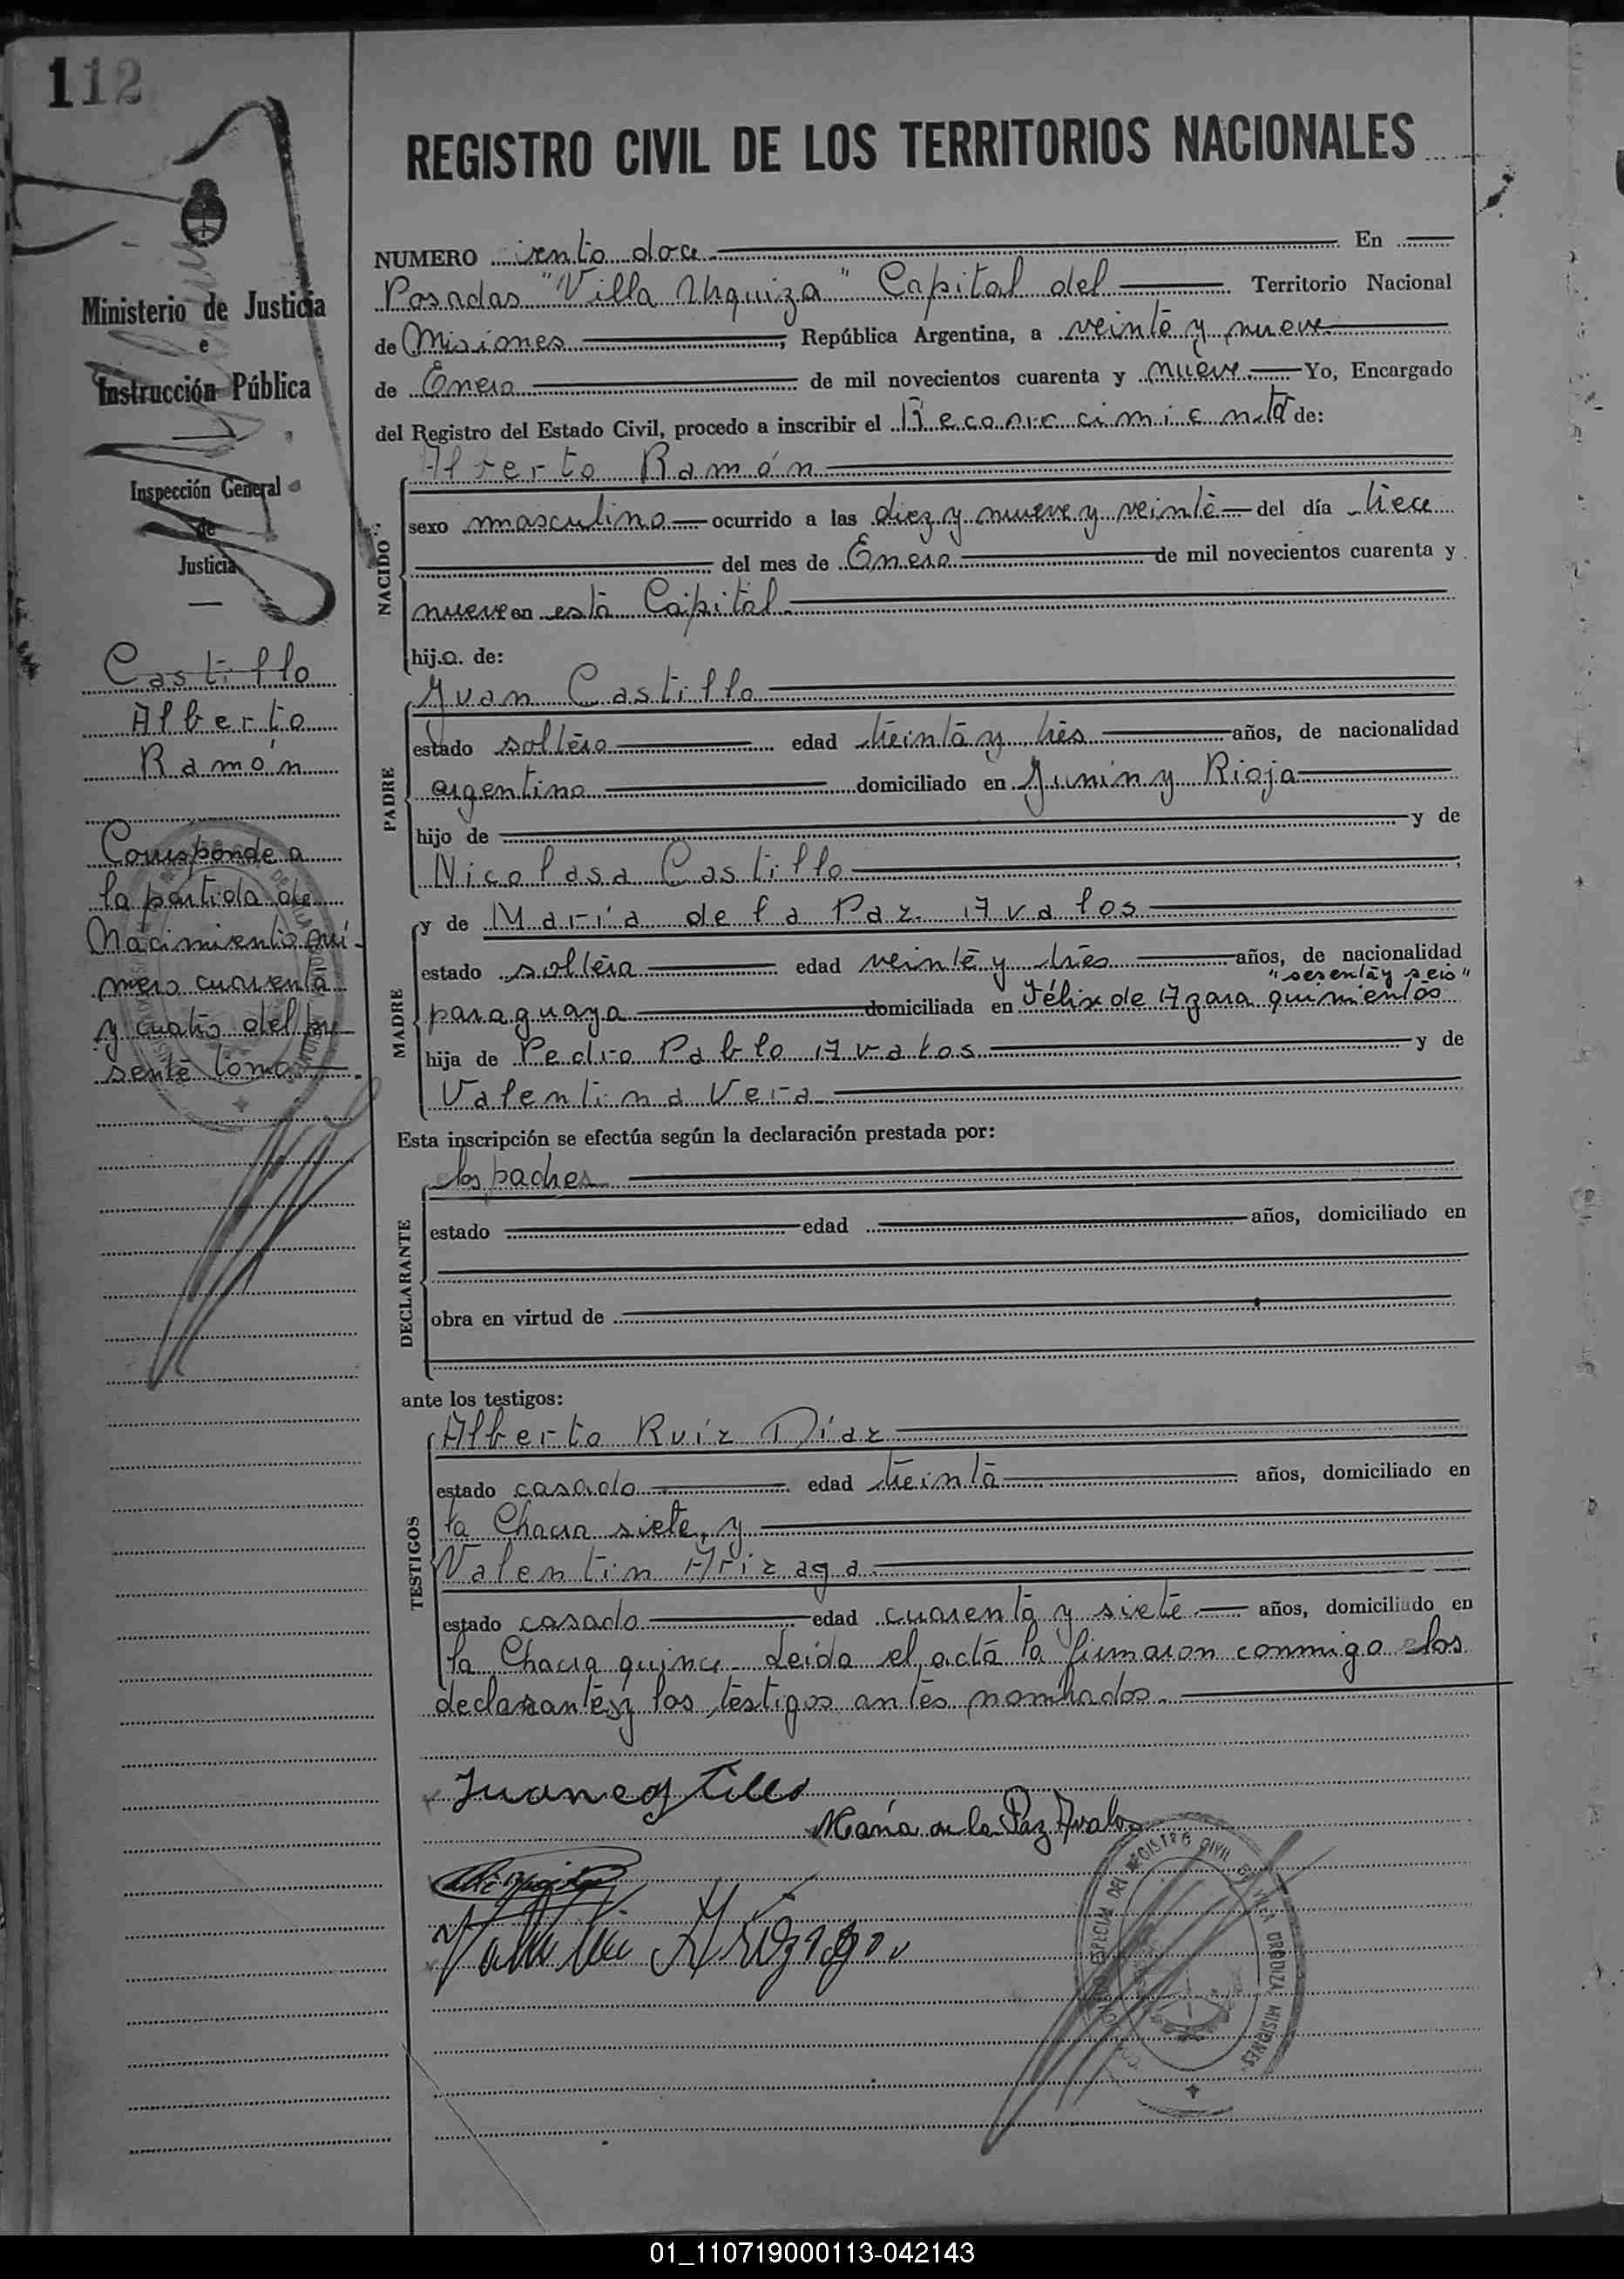 112
REGISTRO CIVIL DE LOS TERRITORIOS NACIONALES
Ministerio de Justicia
e
Instrucción Pública
Inspección General
de
Justicia
Castillo
Alberto
Ramón
Corresponde a
la partida de
Nacimiento nú-
mero cuarenta
y cuatro del pre
sente tomo
NUMERO ciento doce En
Posadas "Villa Urquiza" Capital del Territorio Nacional
de Misiones, República Argentina, a veinte y nueve
de Enero de mil novecientos cuarenta y nueve. Yo, Encargado
del Registro del Estado Civil, procedo a inscribir el Reconocimiento de:
Alberto Ramón
NACIDO
sexo masculino ocurrido a las diez y nueve y veinte del día trece
del mes de Enero de mil novecientos cuarenta y
nueve en esta Capital
hijo de:
Juan Castillo
PADRE
estado soltero edad treinta y tres años, de nacionalidad
argentino domiciliado en Junin y Rioja
hijo de y de
Nicolasa Castillo;
y de María de la Paz Avalos
MADRE
estado soltera edad veinte y tres años, de nacionalidad
"sesenta y seis"
paraguaya domiciliada en Félix de Azara quinientos
hija de Pedro Pablo Avalos y de
Valentina Vera
Esta inscripción se efectúa según la declaración prestada por:
los padres
DECLARANTE
estado edad años, domiciliado en
obra en virtud de
ante los testigos:
Alberto Ruíz Díaz
TESTIGOS
estado casado edad treinta años, domiciliado en
la Chacra siete, y
Valentin Arizaga
estado casado edad cuarenta y siete años, domiciliado en
la Chacra quince. Leida el acta la firmaron conmigo los
declarantes y los testigos antes nombrados.
Juan Castillo
María de la Paz Avalos
Valentin Arizaga
ESPECIAL DEL REGISTRO CIVIL EN VILLA URQUIZA MISIONES
01_110719000113-042143